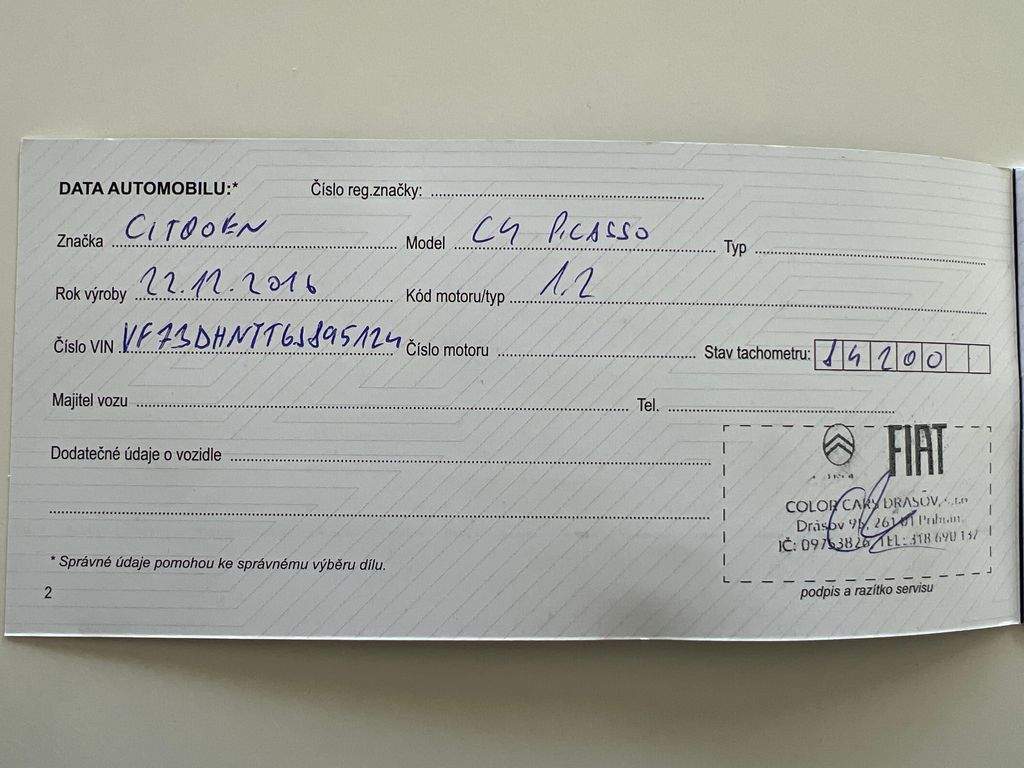 DATA AUTOMOBILU:* Číslo reg.značky:
Značka CITROEN Model C4 PICASSO Typ
Rok výroby 22.12.2016 Kód motoru/typ 1.2
Číslo VIN Číslo motoru Stav tachometru: 84200
Majitel vozu Tel.
Dodatečné údaje o vozidle
FIAT
COLOR CARS DRASOV, s.r.o
Drásov 95, 261 01 Příbram
IČ: 09753826, TEL: 318 690 137
* Správné údaje pomohou ke správnému výběru dílu.
2
podpis a razítko servisu